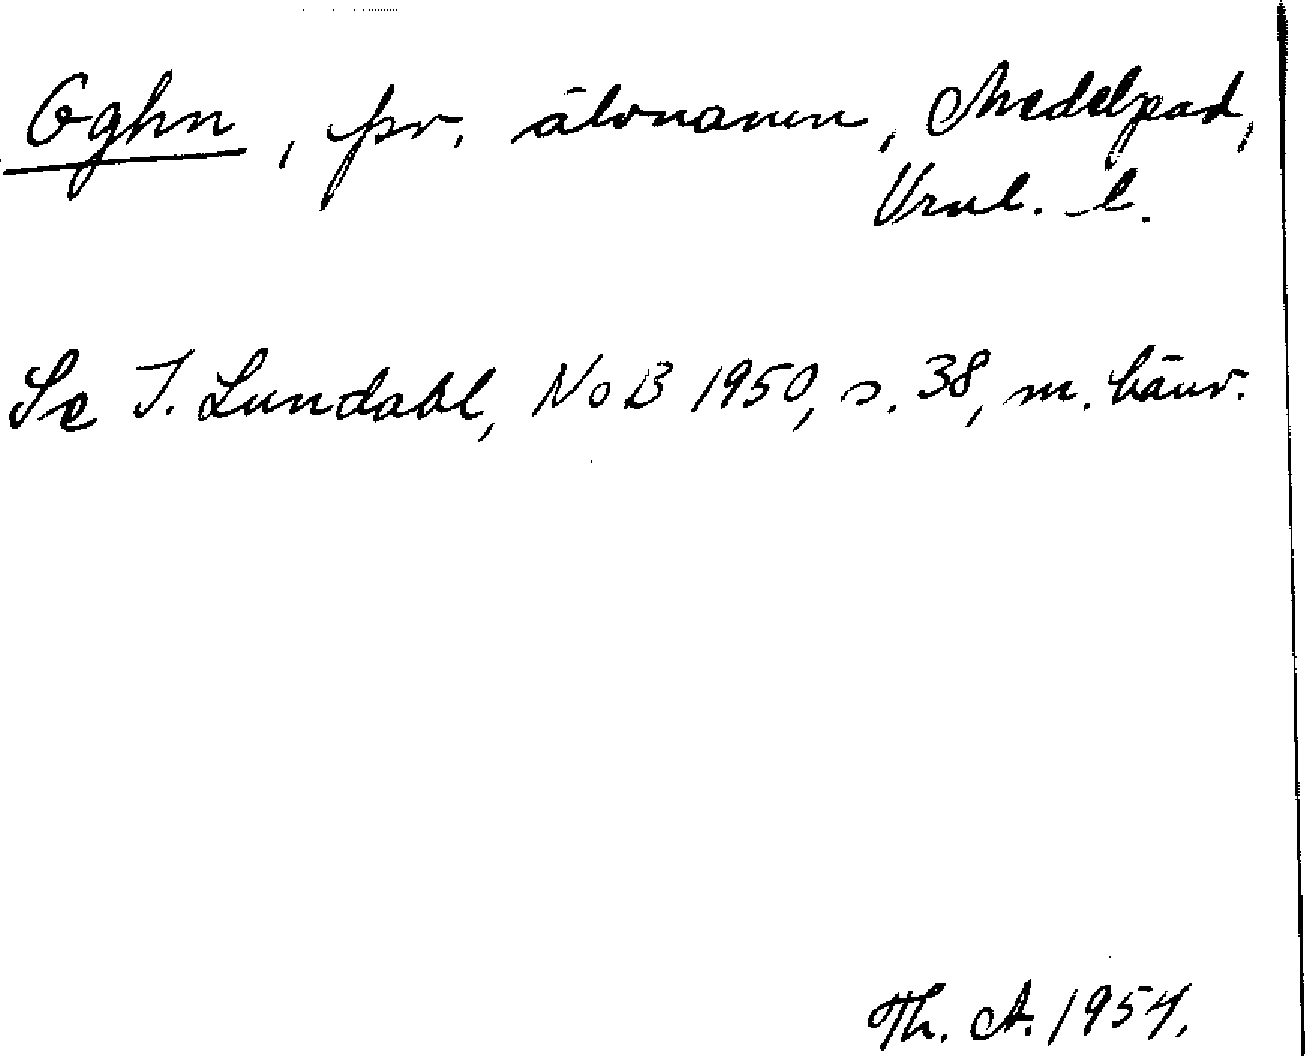 Oghn, fsv. älvnamn, Medelpad,
Vrml. l.
Se I. Lundahl, NoB 1950, s. 38, m. hänv.
Th. A. 1954.